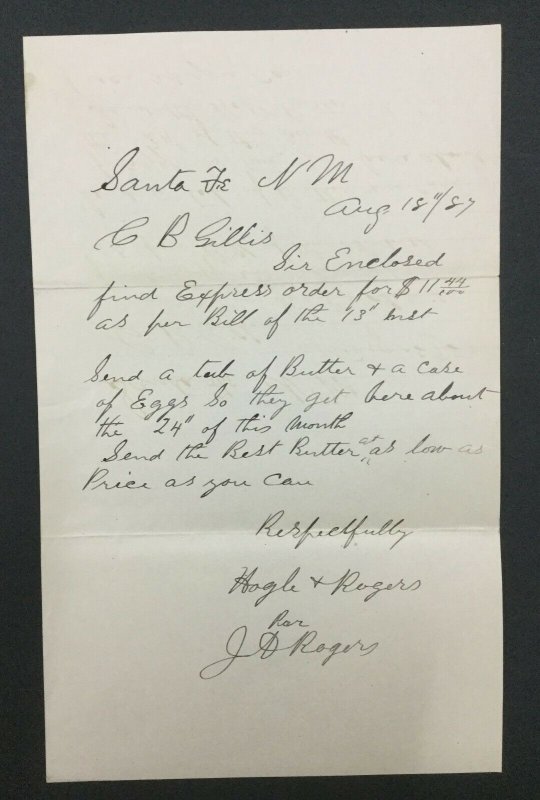 Santa Fe N M
Aug 18"/87
C B Gillis
Sir Enclosed
find Express order for $11 44/100
as per Bill of the 13" Inst
Send a tub of Butter & a case
of Eggs So they get here about
the 24" of this Month
Send the Best Butter at as low as
Price as you can
Respectfully
Hogle & Rogers
Per
J D Rogers